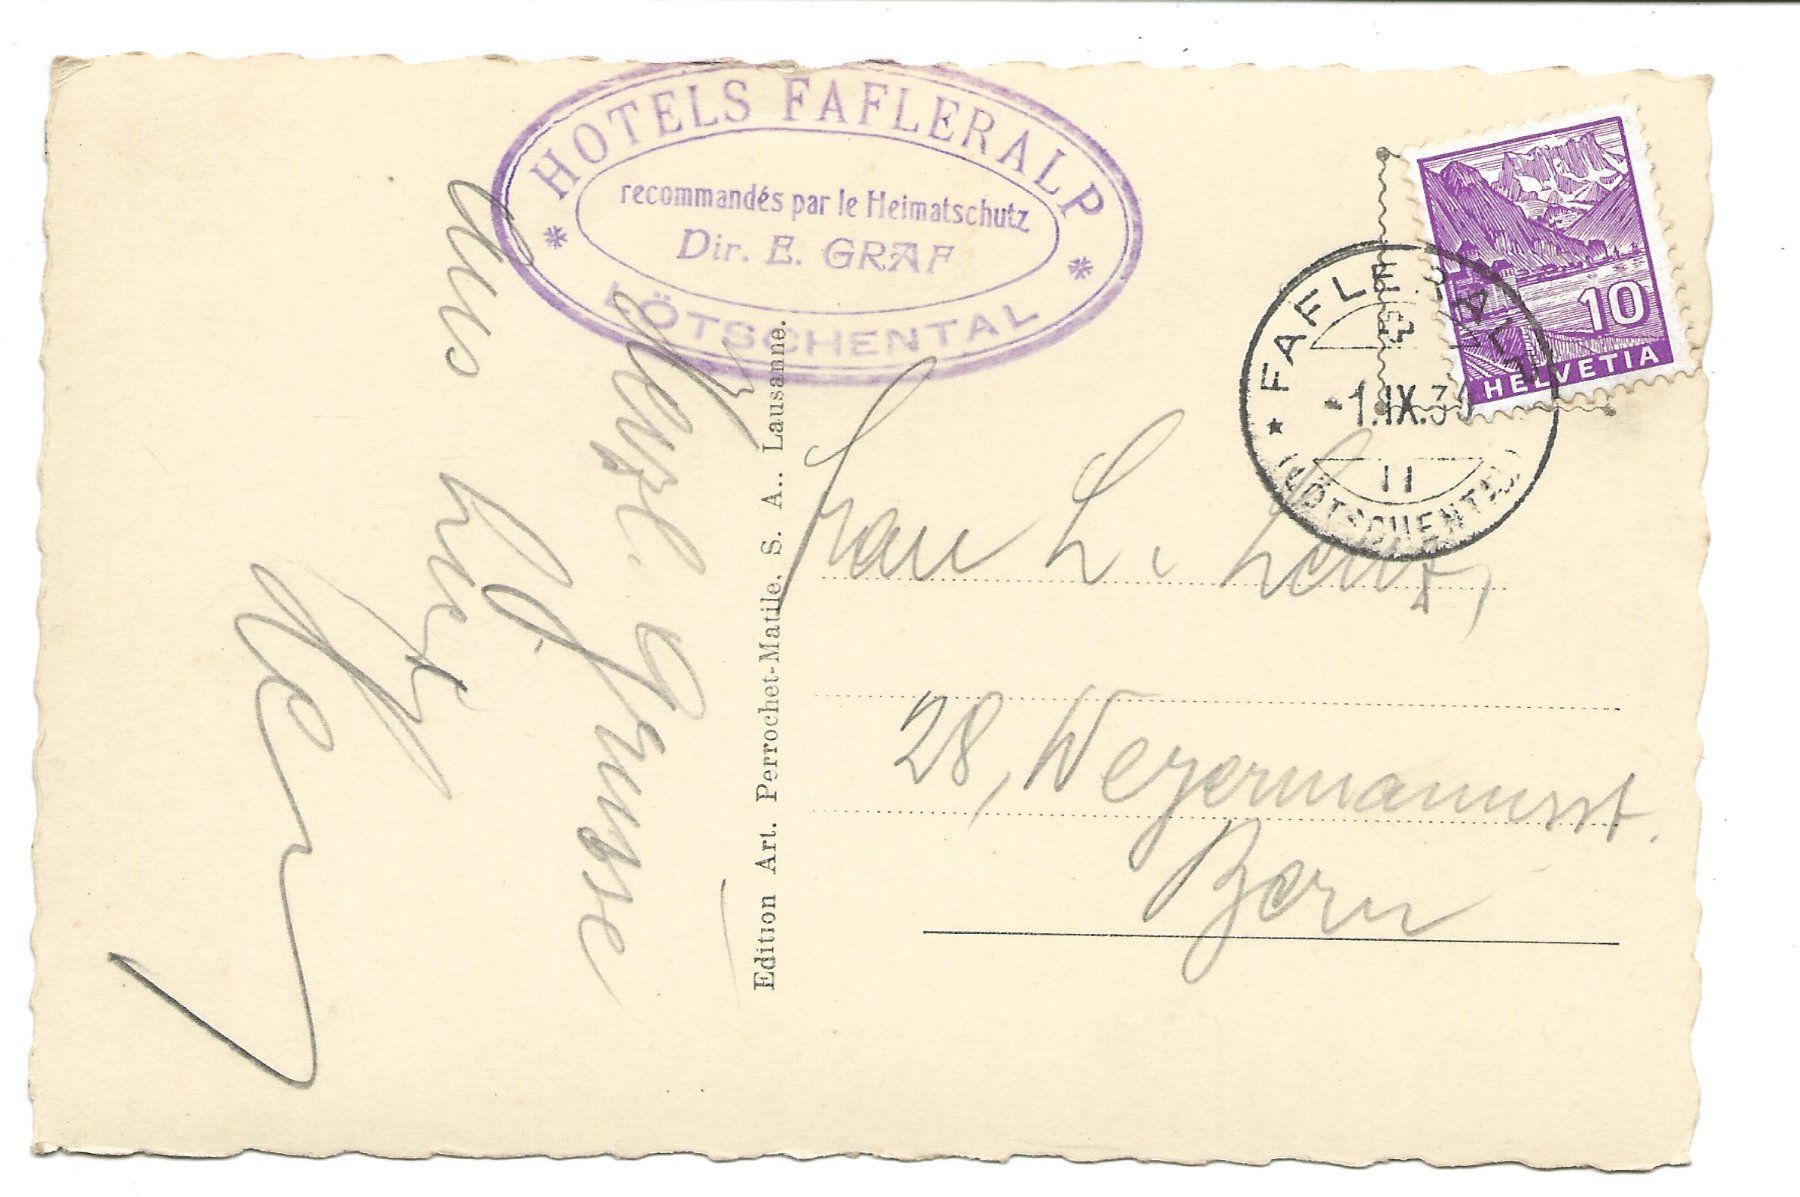 HOTELS FAFLERALP
recommandés par le Heimatschutz
Dir. E. GRAF
LÖTSCHENTAL
10
HELVETIA
FAFLERALP
-1.IX.3
11
(LÖTSCHENTAL)
Herzl. Grüsse
Aus
Edition Art. Perrochet-Matile, S. A., Lausanne.
Frau L. Lentz,
28, Weyermannsst.
Bern